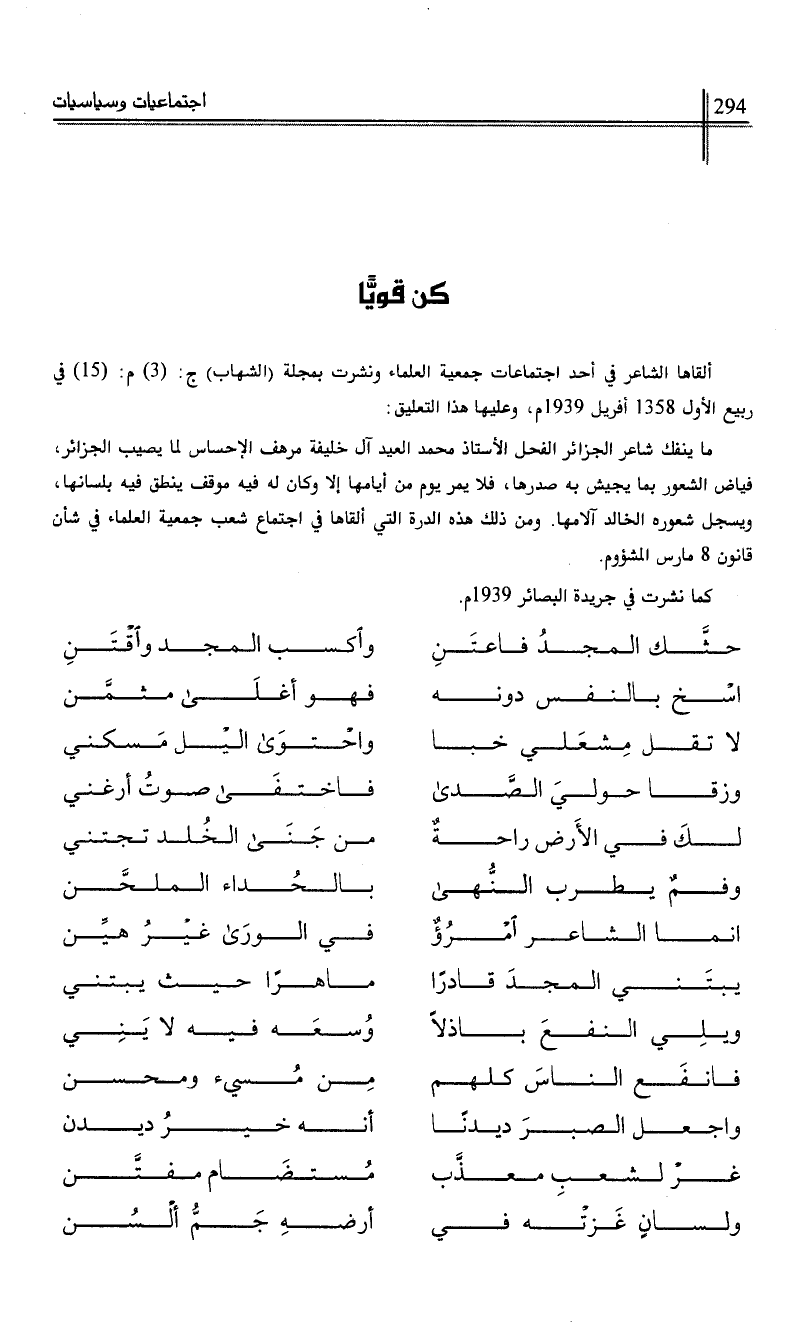 294
اجتماعيات وسياسيات
كن قويًّا
ألقاها الشاعر في أحد اجتماعات جمعية العلماء ونشرت بمجلة (الشهاب) ج: (3) م: (15) في
ربيع الأول 1358 أفريل 1939م، وعليها هذا التعليق:
ما ينفك شاعر الجزائر الفحل الأستاذ محمد العيد آل خليفة مرهف الإحساس لما يصيب الجزائر،
فياض الشعور بما يجيش به صدرها، فلا يمر يوم من أيامها إلا وكان له فيه موقف ينطق فيه بلسانها،
ويسجل شعوره الخالد آلامها. ومن ذلك هذه الدرة التي ألقاها في اجتماع شعب جمعية العلماء في شأن
قانون 8 مارس المشؤوم.
كما نشرت في جريدة البصائر 1939م.
حثَّك المجدُ فاعتَنِ وأكسب المجد وٱقْتَنِ
اسْخ بالنفس دونه فهو أغلَى مثمَّن
لا تقل مِشعَلي خبا واحْتوَىٰ اليْل مَسكني
وزقا حوليَ الصَّدىٰ فاختفَىٰ صوتُ أرغني
لكَ في الأرض راحةٌ من جَنَىٰ الخُلد تجتني
وفمٌ يطرب النُّهىٰ بالحُداء الملحَّن
انما الشاعر ٱمْرُؤٌ في الورَىٰ غيْرُ هيِّن
يبتَني المجدَ قادرًا ماهرًا حيث يبتني
ويلِي النفعَ باذلاً وُسعَه فيه لا يَنِي
فانفَع الناسَ كلهم مِن مُسيء ومحسن
واجعل الصبرَ ديدنًا أنه خيرُ ديدن
غرْ لشعبِ معذَّب مُستضَام مفتَّن
ولسانٍ غَزتْه في أرضهِ جَمُّ ألْسُن